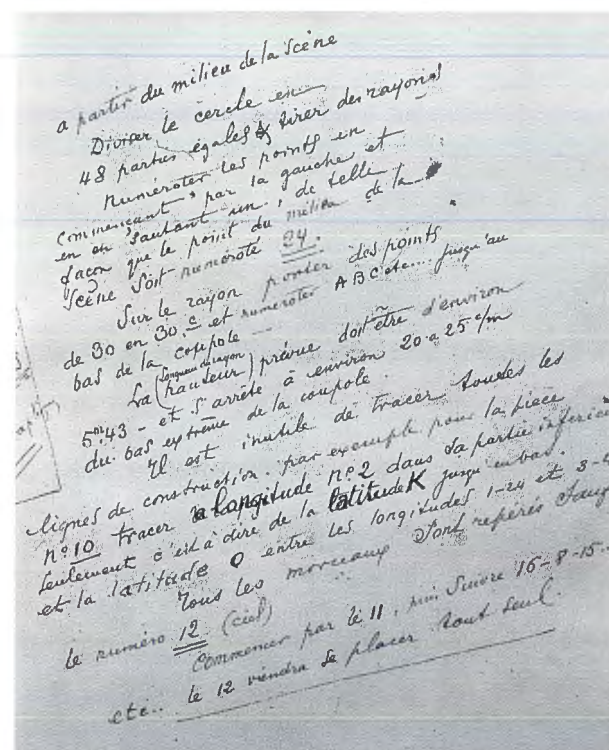 a partir du milieu de la Scène
Diviser le cercle en
48 parties égales & tirer des rayons
numéroter les points en
commençant par la gauche et
en en "sautant un", de telle
façon que le point du milieu de la
Scène soit numéroté 24.
Sur le rayon porter des points
de 30 en 30 c. et numéroter A B C etc... jusqu'au
bas de la coupole
La (hauteur) (longueur du rayon) prévue doit être d'environ
5m43 - et s'arrête à environ 20 à 25 c/m
du bas extrême de la coupole.
Il est inutile de tracer toutes les
lignes de construction. par exemple pour la pièce
n° 10 tracer la Longitude n° 2 dans sa partie
seulement c'est à dire de la latitude K jusqu'en bas.
et la latitude O entre les longitudes 1-24 et 3-
Tous les morceaux sont repérés
le numéro 12 (ciel)
Commencer par le 11, puis suivre 16-8-15..
etc.. le 12 viendra se placer tout seul.